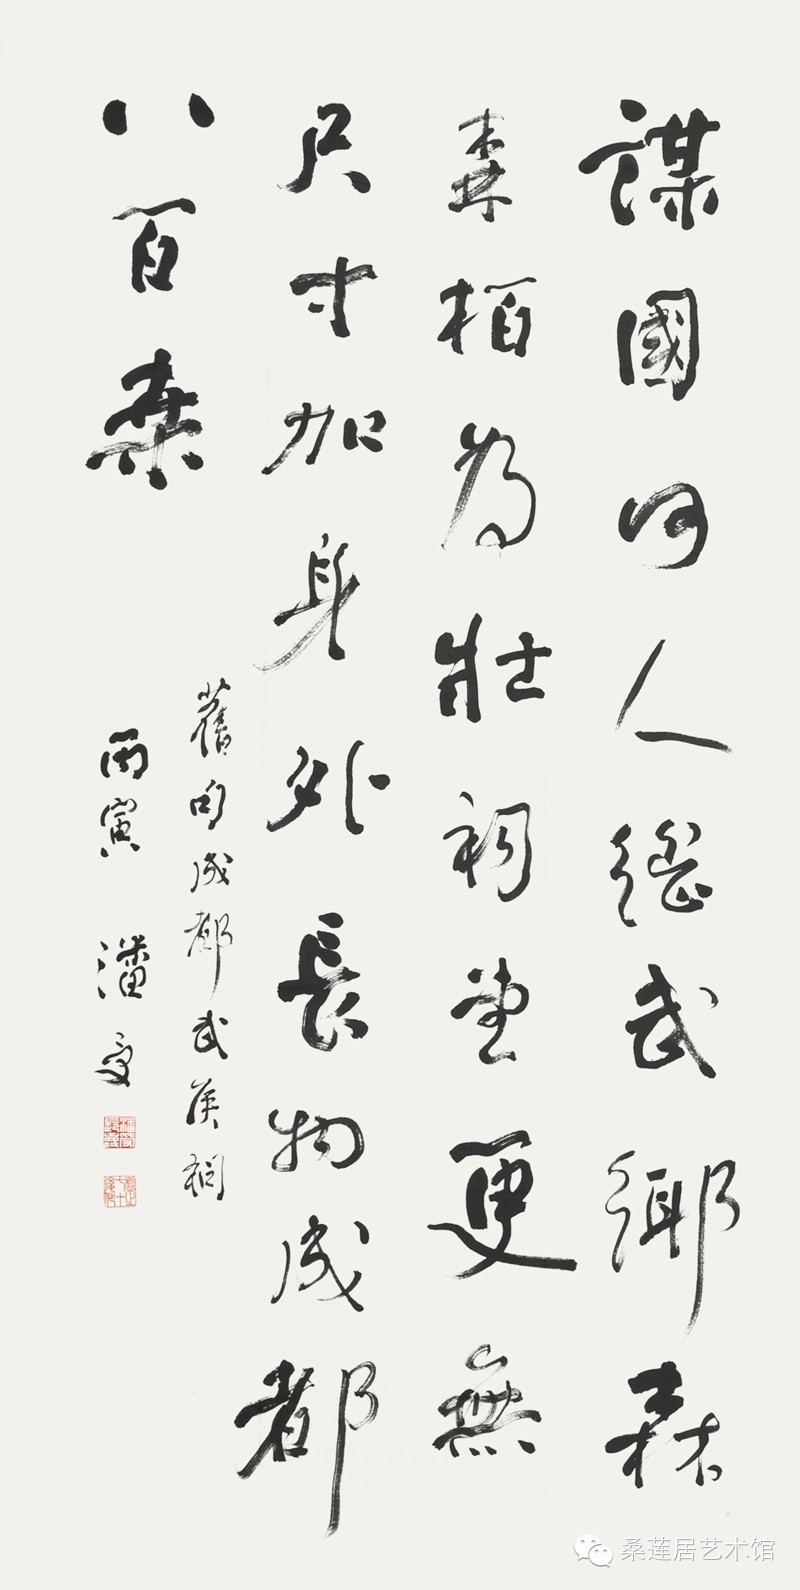 謀國何人繼武鄉森
森柏為壯祠堂更無
尺寸加身外長物成都
八百桑
舊句成都武侯祠
丙寅 潘受
桑莲居艺术馆